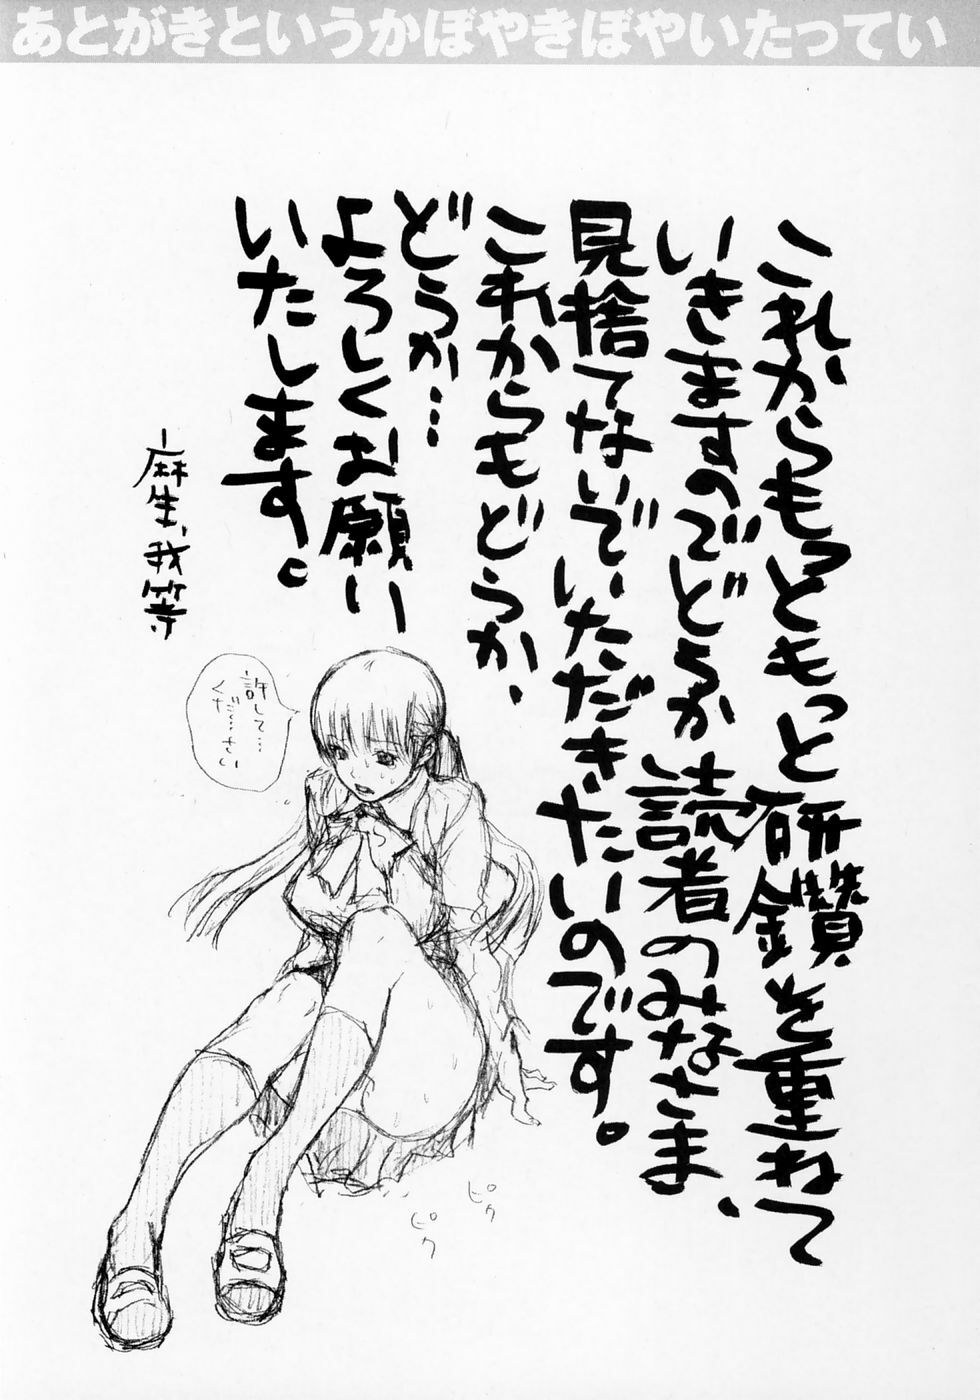 あとがきというかぼやきぼやいたってい
これからもっともっと研鑽を重ねて
いきますのでどうか読者のみなさま、
見捨てないでいただきたいのです。
これからもどうか、
どうか…
よろしくお願い
いたします。
麻生我等
許して…
くだ…さい
ピク
ピク